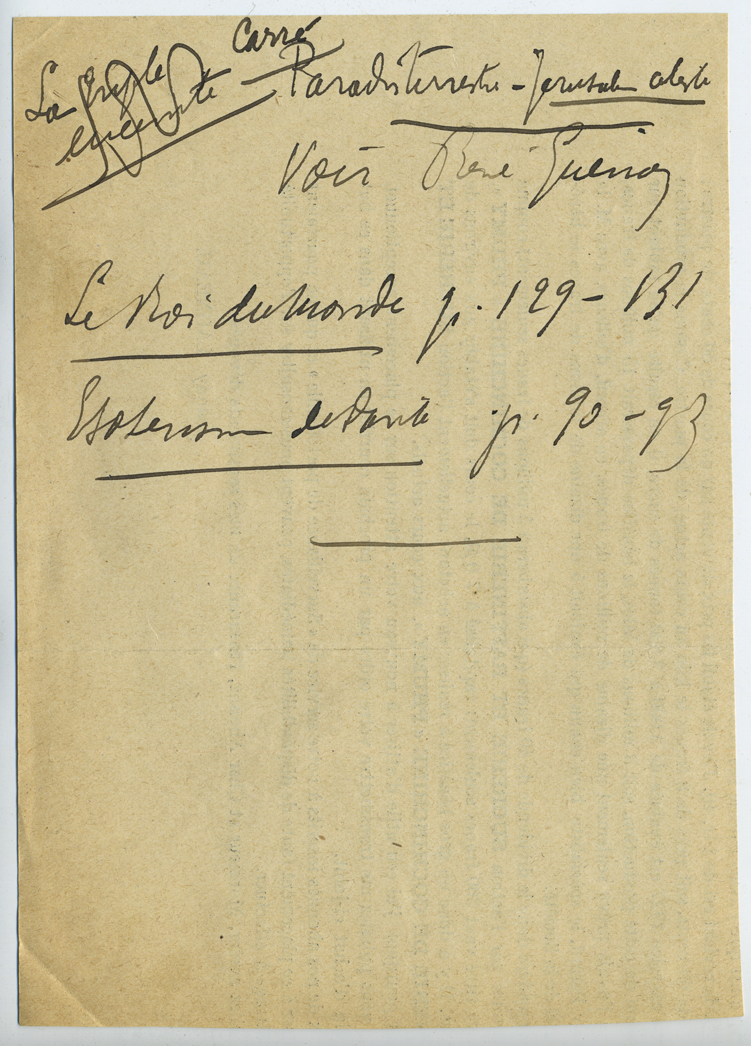 Carré
La triple enceinte - Paradis terrestre - Jerusalem celeste
Voir René Guénon
Le Roi du Monde p. 129 - 131
Esoterisme de Dante p. 90 - 93